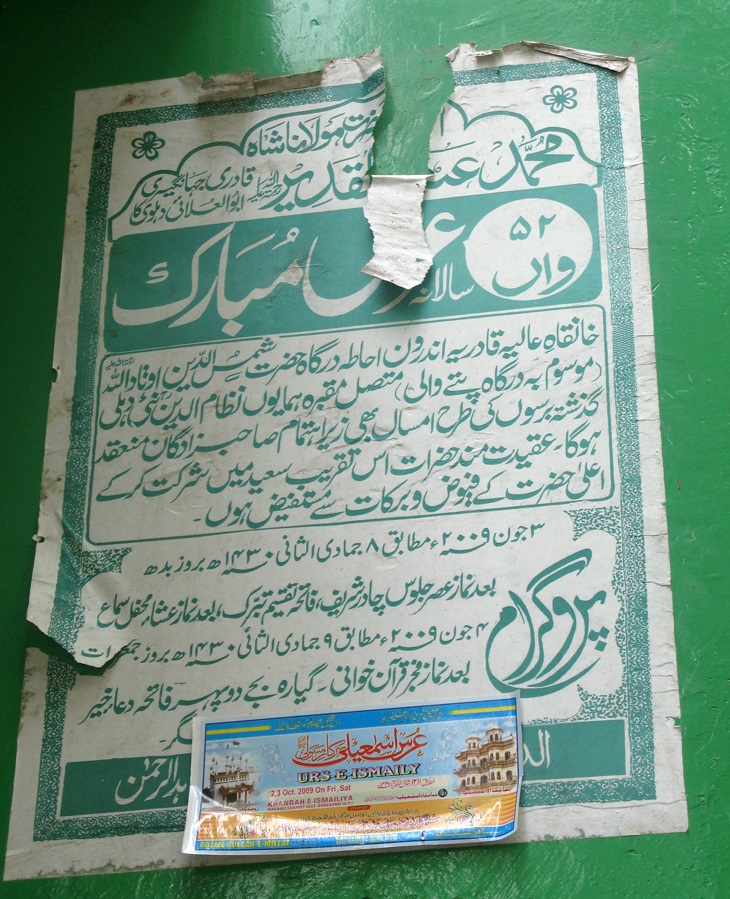 حضرت مولانا شاہ
محمد عبد القدیر قادری جہانگیری
ابوالعلائی دہلوی کا
۵۲ واں سالانہ عرس مبارک
خانقاہ عالیہ قادریہ اندرون احاطہ درگاہ حضرت شمس الدین اوتاد اللہ
(موسوم بہ درگاہ پتے والی) متصل مقبرہ ہمایوں نظام الدین نئی دہلی
گذشتہ برسوں کی طرح امسال بھی زیر اہتمام صاحبزادگان منعقد
ہوگا۔ عقیدت مند حضرات اس تقریب سعید میں شرکت کر کے
اعلیٰ حضرت کے فیوض و برکات سے مستفیض ہوں۔
۳ جون ۲۰۰۹ء مطابق ۸ جمادی الثانی ۱۴۳۰ھ بروز بدھ
پروگرام
بعد نماز عصر جلوس چادر شریف، فاتحہ تقسیم تبرک، بعد نماز عشاء محفل سماع
۴ جون ۲۰۰۹ء مطابق ۹ جمادی الثانی ۱۴۳۰ھ بروز جمعرات
بعد نماز فجر قرآن خوانی۔ گیارہ بجے دوپہر فاتحہ دعا خیر
عرس اسمعیلی
URS-E-ISMAILY
2,3 Oct. 2009 On Fri, Sat
KHANQAH-E-ISMAILIYA